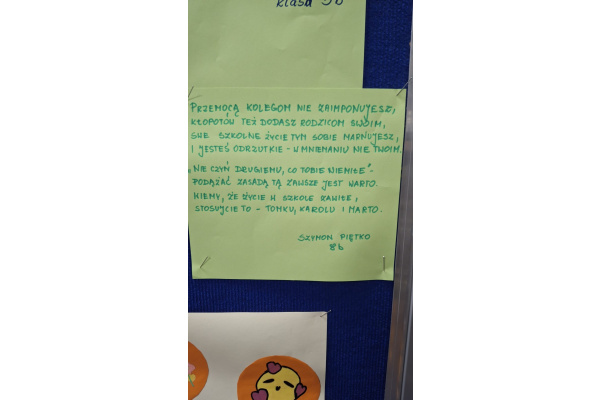 klasa 5b
PRZEMOCĄ KOLEGOM NIE ZAIMPONUJESZ,
KŁOPOTÓW TEŻ DODASZ RODZICOM SWOIM,
SWE SZKOLNE ŻYCIE TYM SOBIE MARNUJESZ,
I JESTEŚ ODRZUTKIE - W MNIEMANIU NIE TWOIM.
„NIE CZYŃ DRUGIEMU, CO TOBIE NIEMIŁE"-
PODĄŻAĆ ZASADĄ TĄ ZAWSZE JEST WARTO.
WIEMY, ŻE ŻYCIE W SZKOLE ZAWIŁE,
STOSUJCIE TO - TOMKU, KAROLU I MARTO.
SZYMON PIĘTKO
8b